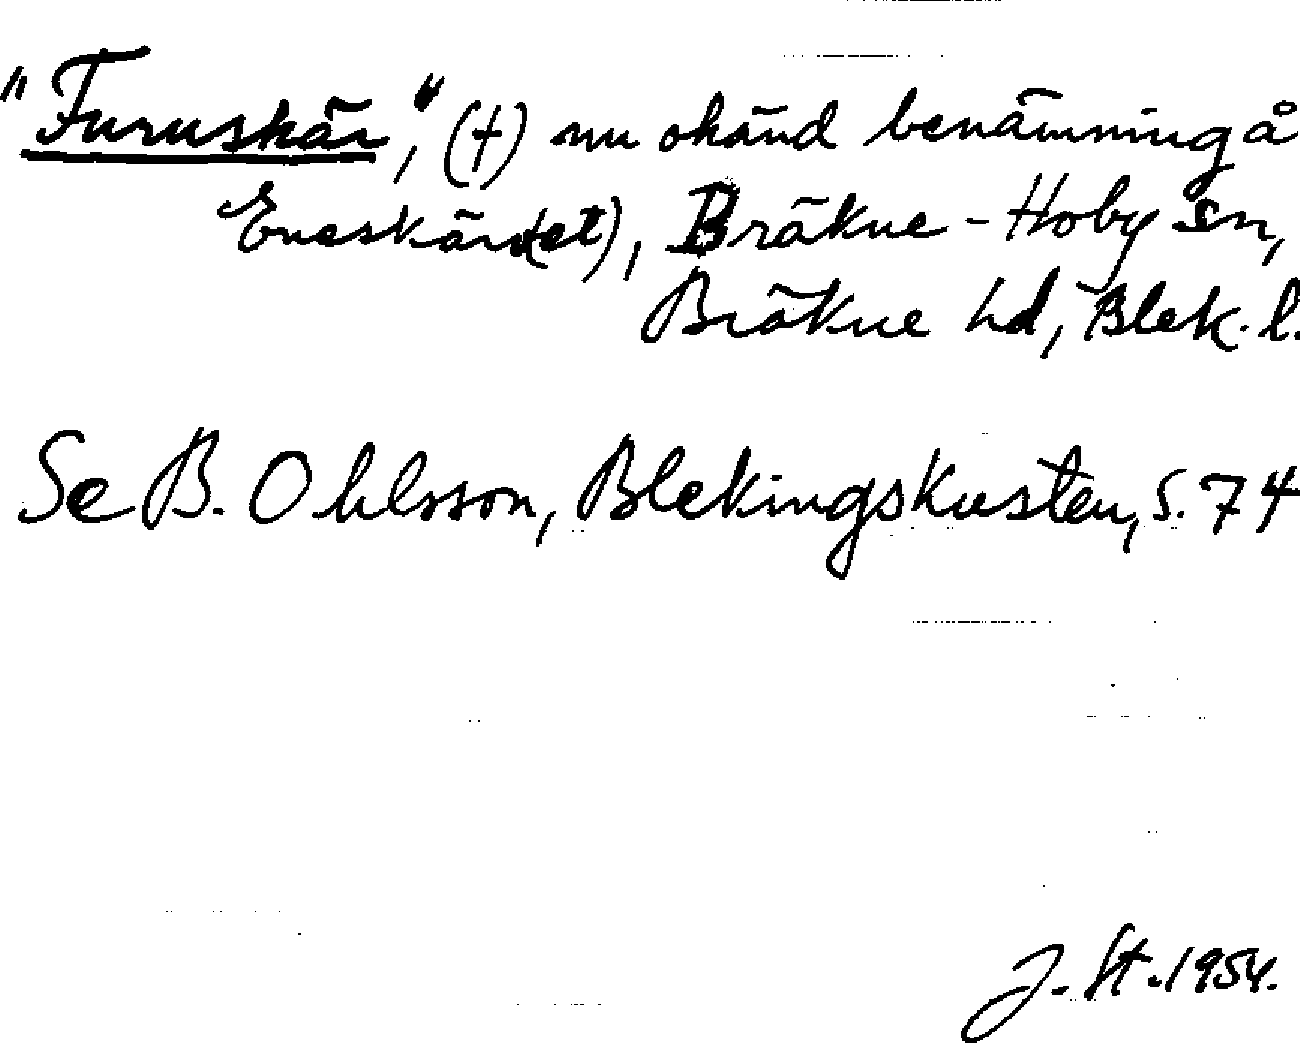 "Furuskär," (†) nu okänd benämning å
Eneskär(et), Bräkne-Hoby sn,
Bräkne hd, Blek. l.
Se B. Ohlsson, Blekingskusten, s. 74
J. St. 1954.